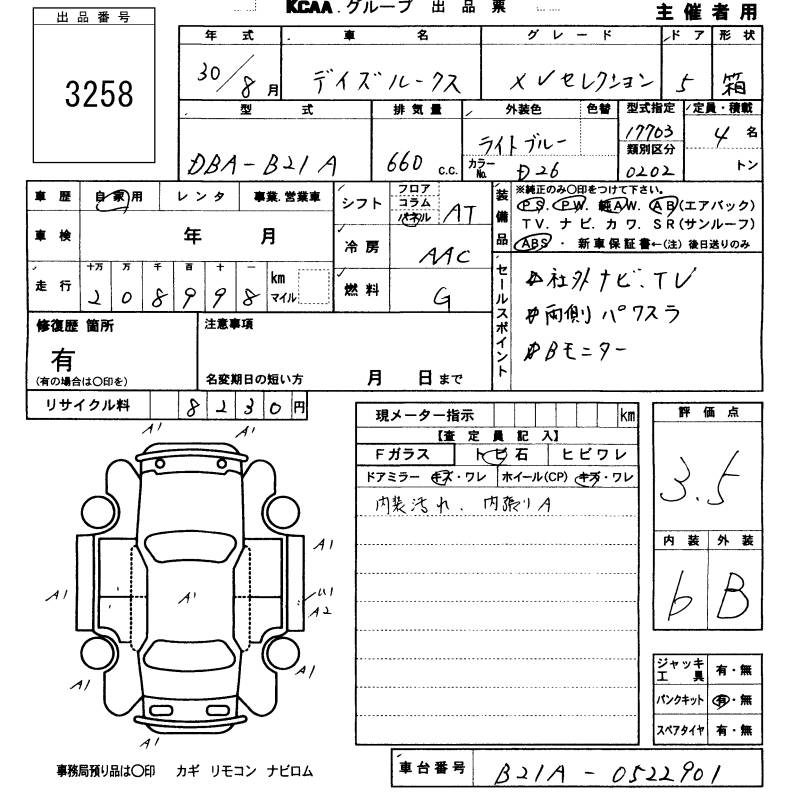 KCAA.グループ 出品票
主催者用
出品番号
3258
年式 車名 グレード ドア 形状
30/8月 デイズルークス XVセレクション 5 箱
型式 排気量 外装色 色替 型式指定 定員・積載
DBA-B21A 660 c.c. ライトブルー 17703 4名
類別区分
カラーNo. D26 0202 トン
車歴 自家用 レンタ 事業.営業車
車検 年 月
走行 十万 万 千 百 十 一 km マイル
208998
シフト フロア コラム パネル AT
冷房 AAC
燃料 G
装備品 ※純正のみ〇印をつけて下さい。
PS. PW. 純AW. AB(エアバック)
TV. ナビ. カワ. SR(サンルーフ)
ABS ・ 新車保証書←(注) 後日送りのみ
セールスポイント
社外ナビ、TV
両側パワスラ
Bモニター
修復歴 箇所 注意事項
有
(有の場合は〇印を) 名変期日の短い方 月 日まで
リサイクル料 8230円
現メーター指示 km
【査定員記入】
Fガラス トビ石 ヒビワレ
ドアミラー キズ・ワレ ホイール(CP) キズ・ワレ
内装汚れ、内張りA
評価点
3.5
内装 外装
b B
ジャッキ工具 有・無
パンクキット 有・無
スペアタイヤ 有・無
A1 A1
A1
A1 A1 A2
A1 A1
A1
事務局預り品は〇印 カギ リモコン ナビロム
車台番号 B21A-0522901